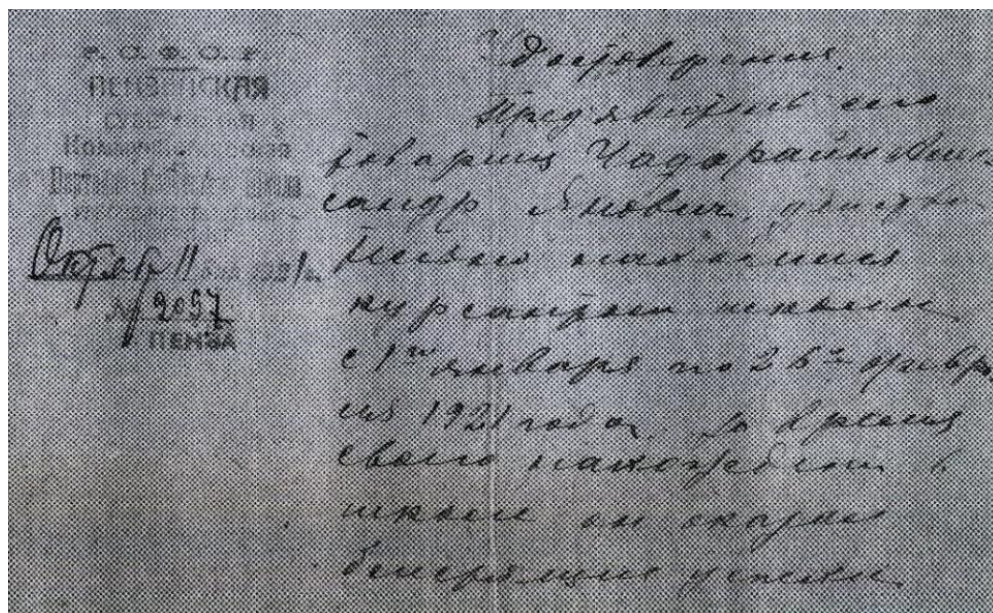 Р. С. Ф. С. Р.
ПЕНЗЕНСКАЯ
Партийная Школа
Октября 11 дня 1921 г.
№ 2097
ПЕНЗА
Удостоверение.
Предъявитель сего
товарищ Чадарайн Алек-
сандр Янович, действи-
тельно находился
курсантом школы
с 1го января по 26е февра
ля 1921 года. За время
своего нахождения в
школе он оказал
блестящие успехи.